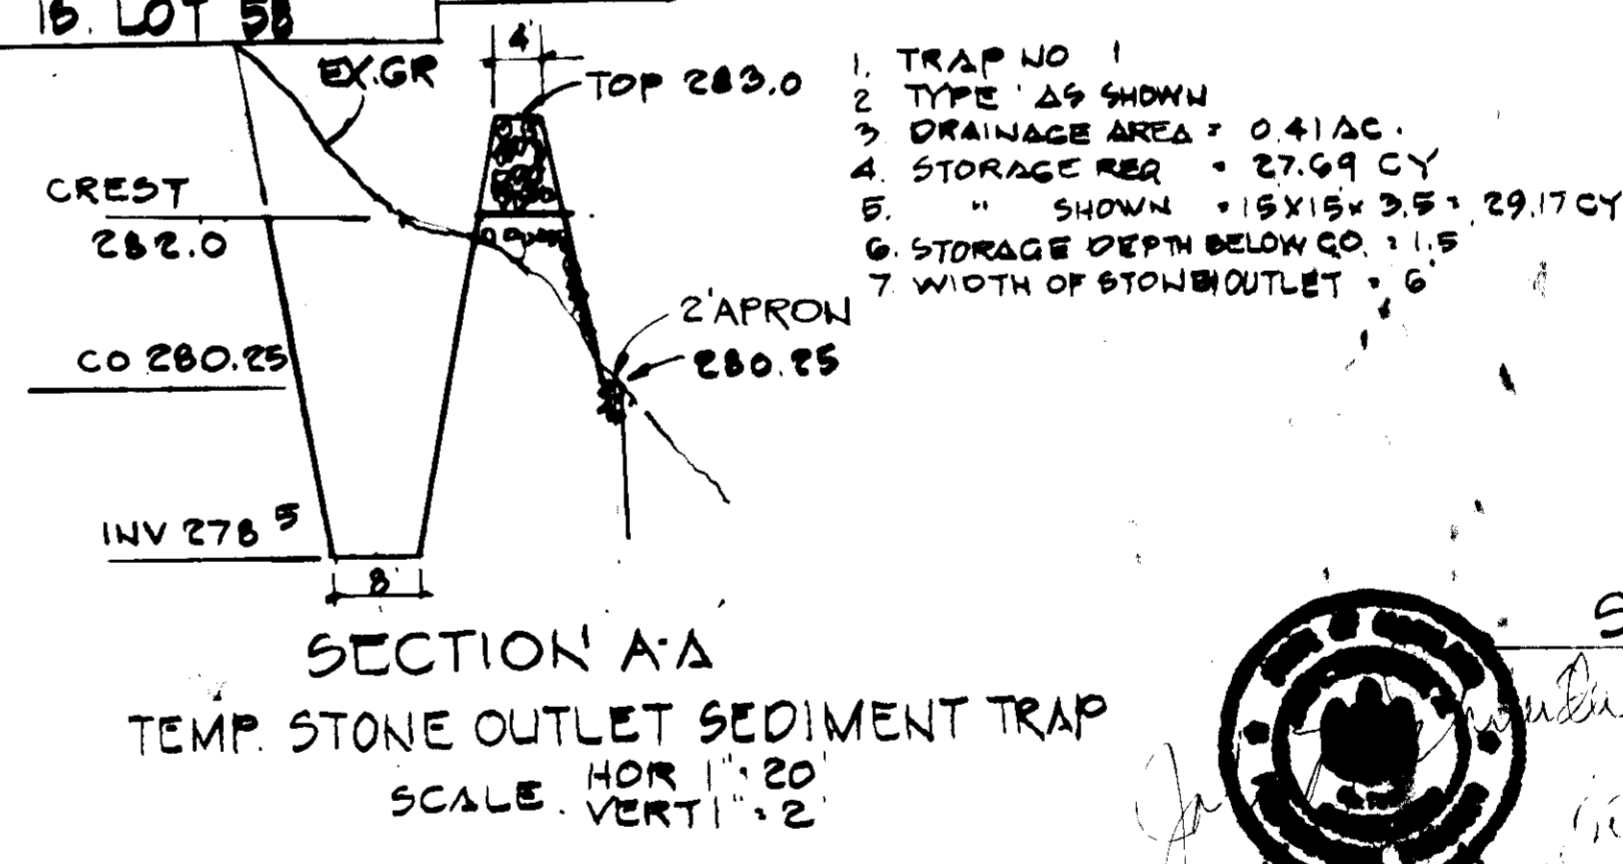 18. LOT 5B
4'
EX.GR
TOP 283.0
CREST
282.0
CO 280.25
2' APRON
280.25
INV 278.5
8'
1. TRAP NO 1
2 TYPE AS SHOWN
3. DRAINAGE AREA = 0.41 AC.
4. STORAGE REQ = 27.69 CY
5. " SHOWN = 15X15X3.5 = 29.17 CY
6. STORAGE DEPTH BELOW CO. = 1.5'
7. WIDTH OF STONE OUTLET = 6'
SECTION A-A
TEMP. STONE OUTLET SEDIMENT TRAP
SCALE. HOR 1" = 20'
VERT 1" = 2'